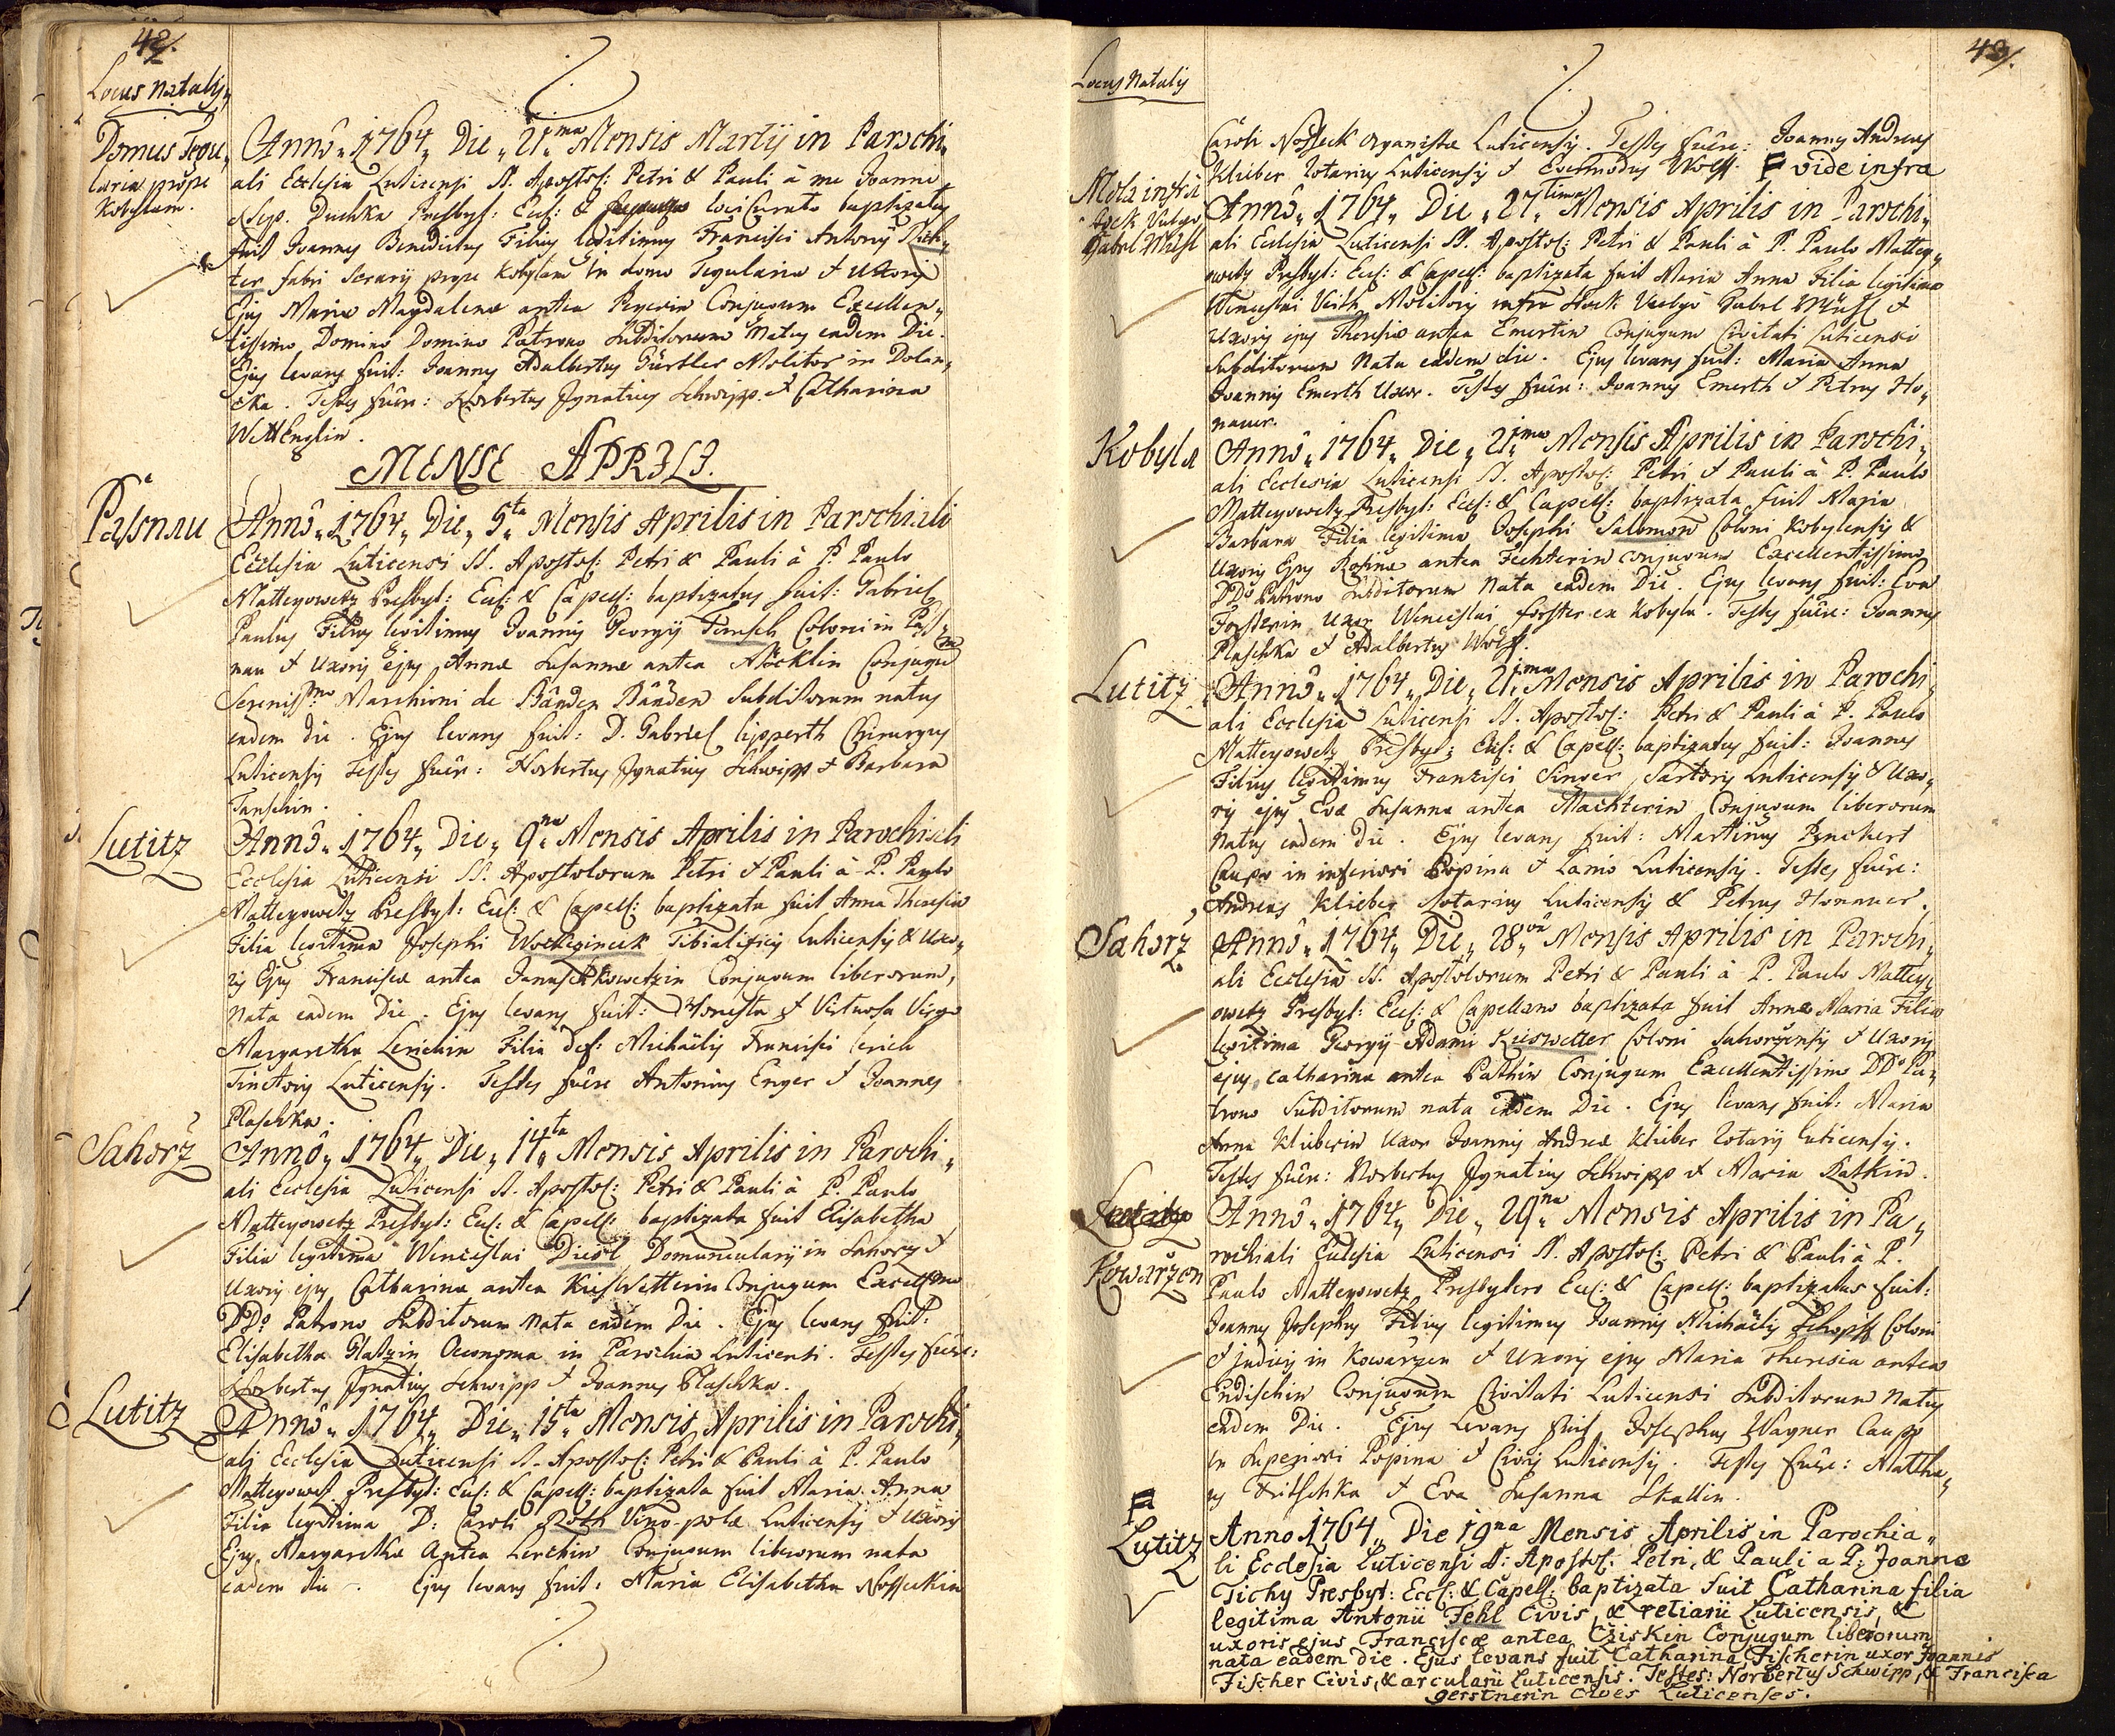 42.
Locus Natalis
Domus Tegu„
laria prope
Kobylam.
Annô„ 1764„ Die„ 21„ma Mensis Martij in Parochi„
ali Ecclesia Luticensi SS. Apostol: Petri & Pauli â me Joanne
Nep. Duchka Presbyt: Eccl: & loci Curato baptizatus
fuit Joannes Benedictus Filius legitimus Francisci Antonij Rich„
ter fabri ferarij prope Kobylam in domo Tegularia & Uxoris
Ejus Mariæ Magdalenæ antea Conjugum Excellen„
tissimo Domino Domino Patrono Subditorum Natus eadem Die.
Ejus levans fuit: Joannes Adalbertus Gürtler Molitor in Dolan„
cka. Testes fuêre: Norbertus Ignatius Schwipp & Catharina
WettEnglin.
MENSE APRILI.
Passnau
Annô„ 1764„ Die„ 5„ta Mensis Aprilis in Parochiali
Ecclesia Luticensi SS. Apostol: Petri & Pauli â P. Paulo
Matteyowetz Presbyt: Eccl: & Capell: baptizatus fuit: Gabriel
Paulus Filius legitimus Joannis Georgij Tamsch Coloni in Pass„
nau & Uxoris ejus Annæ Susannæ antea Nöcklin Conjugum
Sereniss:mo Marchioni de Bânden Bânden Subditorum natus
eadem die. Ejus levans fuit: D. Gabriel Chirurgus
Luticensis Testes fuêre: Norbertus Ignatius Schwipp & Barbara
Tanschin.
Lutitz
Annô„ 1764„ Die„ 9„na Mensis Aprilis in Parochiali
Ecclesia Luticensi SS. Apostolorum Petri & Pauli â P. Paulo
Matteyowetz Presbyt: Eccl: & Capell: baptizata fuit Anna Theresia
Filia legitima Josephi Tibialificis Luticensis & Uxo„
ris Ejus Franciscæ antea Conjugum liberorum,
Nata eadem Die. Ejus levans fuit: Honesta & Virtuosa Virgo
Margaretha Lerichin Filia def: Michaëlis Francisci Lerich
Tinctoris Luticensis. Testes fuêre Antonius Enger & Joannes
Plaschka.
Sahorž
Annô„ 1764„ Die„ 14„ta Mensis Aprilis in Parochi„
ali Ecclesia Luticensi SS. Apostol: Petri & Pauli â P. Paulo
Matteyowetz Presbyt: Eccl: & Capell: baptizata fuit Elisabetha
Filia legitima Wenceslai Diesl Domuncularij in Sahorz &
Uxoris ejus Catharinæ antea KiesWetterin Conjugum Excell:mo
DD:o Patrono Subditorum Nata eadem Die. Ejus levans fuit:
Elisabetha Glatzin Oeconoma in Parochia Luticensi. Testes fuêre:
Norbertus Ignatius Schwipp & Joannes Plaschka.
Lutitz
Annô„ 1764„ Die„ 15„ta Mensis Aprilis in Parochi„
ali Ecclesia Luticensi SS. Apostol: Petri & Pauli â P. Paulo
Matteyowetz Presbyt: Eccl: & Capell: baptizata fuit Maria Anna
Filia legitima D: Caroli Roth Vino-polæ Luticensis & Uxoris
Ejus Margarethæ Antea Lerichin Conjugum liberorum nata
eadem die. Ejus levans fuit: Maria Elisabetha Nossekin
43.
Locus Natalis
Caroli Nosseck Organistæ Luticensis. Testes fuêre: Joannes Andreas
Klieber Notarius Luticensis & Wolff. vide infra
Mola infra
Stock Vulgo
Gabel Mühl
Annô„ 1764„ Die„ 27„tima Mensis Aprilis in Parochi„
ali Ecclesia Luticensi SS. Apostol: Petri & Pauli â P. Paulo Mattey„
owetz Presbyt: Eccl: & Capell: baptizata fuit Maria Anna Filia legitima
Wenceslai Veith Molitoris infra Stock Vulgo Gabel Mühl &
Uxoris ejus Theresiæ antea Emertin Conjugum Civitati Luticensi
Subditorum Nata eadem die. Ejus levans fuit: Maria Anna
Joannis Emerth Uxor. Testes fuêre: Joannes Emerth & Petrus Ho„
nauer.
Kobyla
Annô„ 1764„ Die„ 21„ma Mensis Aprilis in Parochi„
ali Ecclesia Luticensi SS. Apostol: Petri & Pauli â P. Paulo
Matteyowetz Presbyt: Eccl: & Capell: baptizata fuit Maria
Barbara Filia legitima Josephi Salomon Coloni Kobylensis &
Uxoris Ejus Rosinæ antea Fechterin conjugum Excellentissimo
DD:o Patrono Subditorum Nata eadem Die. Ejus levans fuit: Eva
Forsterin Uxor Wenceslai Forster ex Kobyla. Testes fuêre: Joannes
Plaschka & Adalbertus Wolff.
Lutitz
Annô„ 1764„ Die„ 21„ma Mensis Aprilis in Parochi„
ali Ecclesia Luticensi SS. Apostol: Petri & Pauli â P. Paulo
Matteyowetz Presbyt: Eccl: & Capell: baptizatus fuit: Joannes
Filius legitimus Francisci Singer Sartoris Luticensis & Uxo„
ris ejus Evæ Susannæ antea Machterin Conjugum liberorum
Natus eadem die. Ejus levans fuit: Martinus
Caupo in inferiori Popina & Lanio Luticensis. Testes fuêre:
Andreas Klieber Notarius Luticensis & Petrus Honauer.
Sahorž
Annô„ 1764„ Die„ 28„va Mensis Aprilis in Parochi„
ali Ecclesia SS. Apostolorum Petri & Pauli â P. Paulo Mattey„
owetz Presbyt: Eccl: & Capellano baptizata fuit Anna Maria Filia
legitima Georgij Adami Kieswetter Coloni Sahorzensis & Uxoris
ejus Catharinæ antea Pathin Conjugum Excellentissimo DD:o Pa„
trono Subditorum nata eadem Die. Ejus levans fuit: Maria
Anna Klieberin Uxor Joannis Andreæ Klieber Notarij Luticensis.
Testes fuêre: Norbertus Ignatius Schwipp & Maria Rathin.
Kowaržen
Annô„ 1764„ Die„ 29„na Mensis Aprilis in Pa„
rochiali Eclesia Luticensi SS. Apostol: Petri & Pauli â P.
Paulo Matteyowetz Presbytero Eccl: & Capell: baptizatus fuit:
Joannes Josephus Filius legitimus Joannis Michaëlis Schopff Coloni
& judicis in Kowarzen & Uxoris ejus Maria Theresia antea
Endischin Conjugum Civitati Luticensi Subditorum Natus
eadem Die. Ejus Levans fuit Josephus Wagner Caupo
in Superiori Popina & Civis Luticensis. Testes fuêre: Matthæ„
us Fritschka & Eva Susanna Skallin.
Lutitz
Anno 1764„ Die 19na Mensis Aprilis in Parochia„
li Ecclesia Luticensi SS: Apostol: Petri, & Pauli a P: Joanne
Tichy Presbyt: Eccl: & Capell: baptizata fuit Catharina filia
legitima Antonii Fehl Civis, & retiarii Luticensis, &
uxoris ejus Franciscæ antea Cziskin Conjugum liberorum
nata eadem die. Ejus levans fuit Catharina Fischerin uxor Joannis
Fischer Civis, & arcularii Luticensis. Testes: Norbertus Schwipp, & Francisca
Gerstnerin Cives Luticenses.